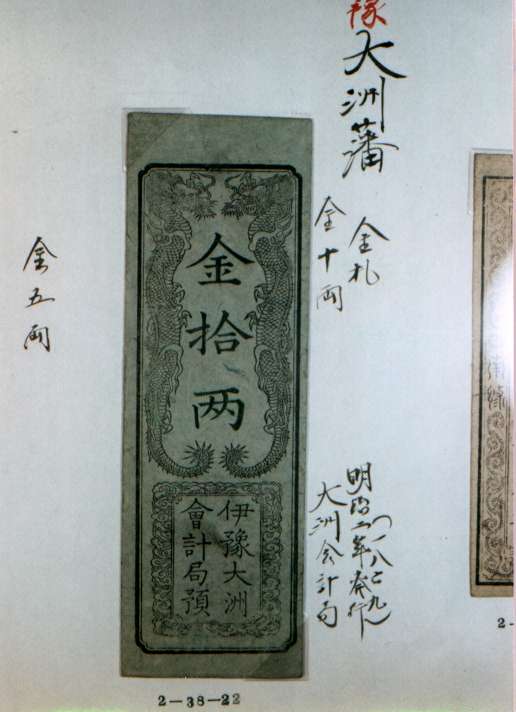 豫
大洲藩
金札
金十両
明治二年発行
(一八六九)
大洲会計局
金拾两
伊豫大洲
會計局預
金五両
2-38-22
2-